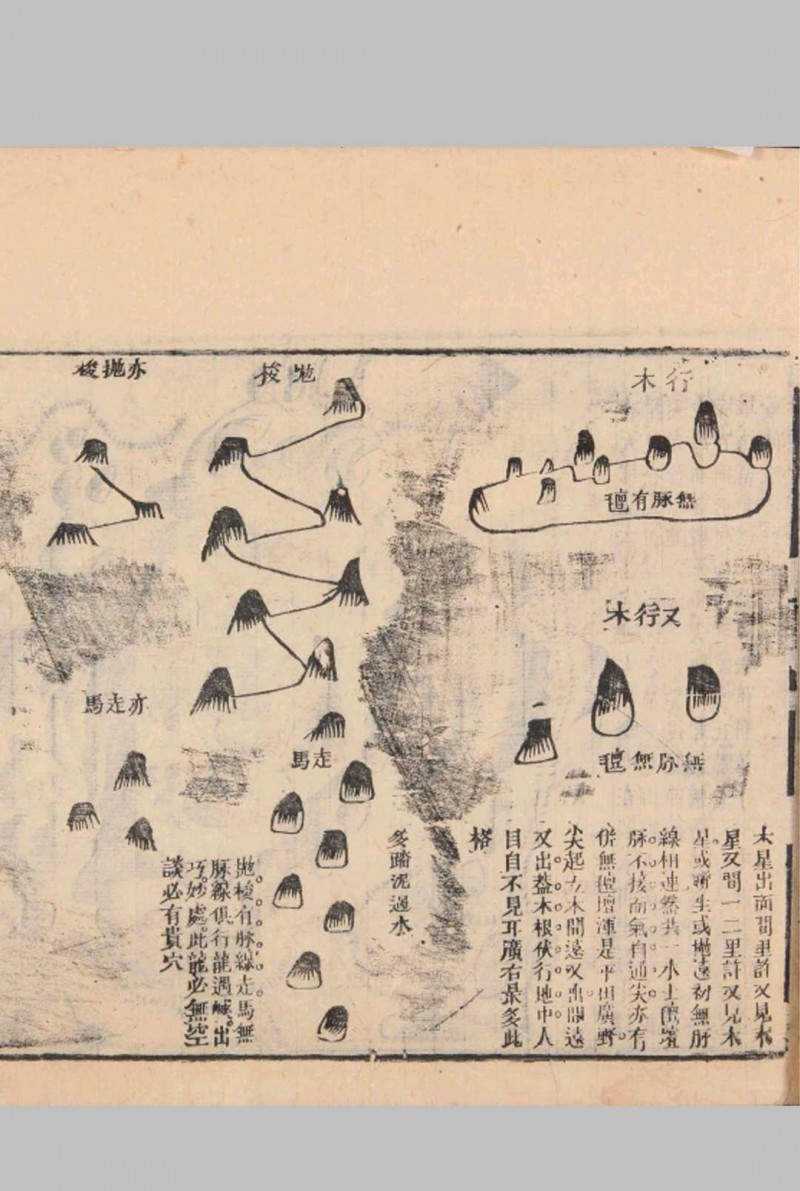 行木
無脉有氊
又行木
無脉無氊
木星出面間里許又見木
星又間一二里許又見木
星或齊生或拋遠初無脉
線相連然共一水土氊壇
脉不接而氣自通尖亦有
併無氊壇渾是平田廣野
尖起立木間遠又出間遠
又出蓋木根伏行地中人
目自不見耳廣右最多此
格
多踏流過水
拋梭
走馬
亦拋梭
亦走馬
拋梭有脉線走馬無
脉線俱行龍過峽出
巧妙處此龍必無空
談必有貴穴